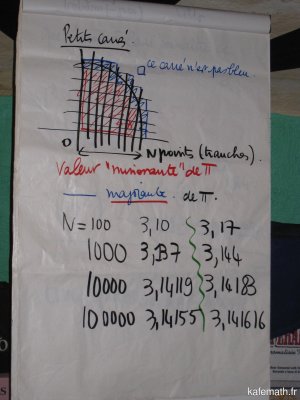 Petits carrés
□ ce carré n'est pas bleu.
O
N points (tranches).
Valeur "minorante" de π
— majorante de π.
N = 100 3,10 3,17
1000 3,137 3,144
10000 3,14119 3,1418
100000 3,14155 3,141616
kafemath.fr